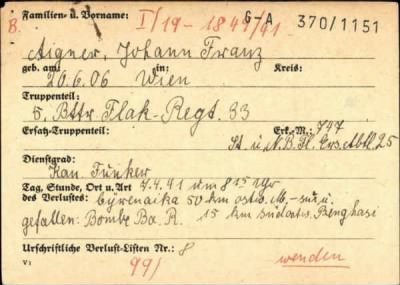 B. Familien- u. Vorname: I/19-1841/41 G-A 370/1151
Aigner, Johann Franz
geb. am: in: Kreis:
20.6.06 Wien
Truppenteil:
5. Bttr. Flak-Regt. 33
Ersatz-Truppenteil: Erk.-M.: 747
St. u. N.B. Fl. Ers. Abtl. 25
Dienstgrad:
Kan. Funker
Tag, Stunde, Ort u. Art 7.4.41 um 8 15 Uhr
des Verlustes: Cyrenaika 50 km ostw. u.
gefallen: Bombe Ba. R. 15 km südostw. Benghasi
Urschriftliche Verlust-Listen Nr.: 8
V: 99/ wenden